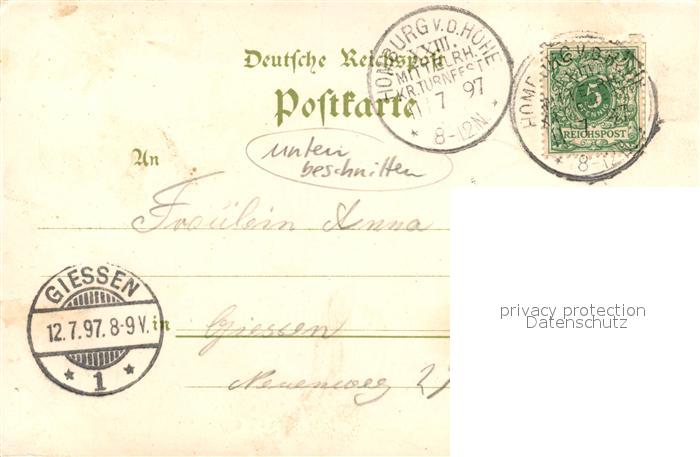 Deutsche Reichspost
Postkarte
HOMBURG V.D. HÖHE
XXIII.
MITTELRH.
KR.TURNFEST
11 7 97
* 8-12N *
HOMBURG V.D.
5
REICHSPOST
* 8-12N
unten
beschnitten
An
Fräulein Anna
GIESSEN
12.7.97. 8-9 V.
* 1 *
in
Giessen
Neuenweg
privacy protection
Datenschutz